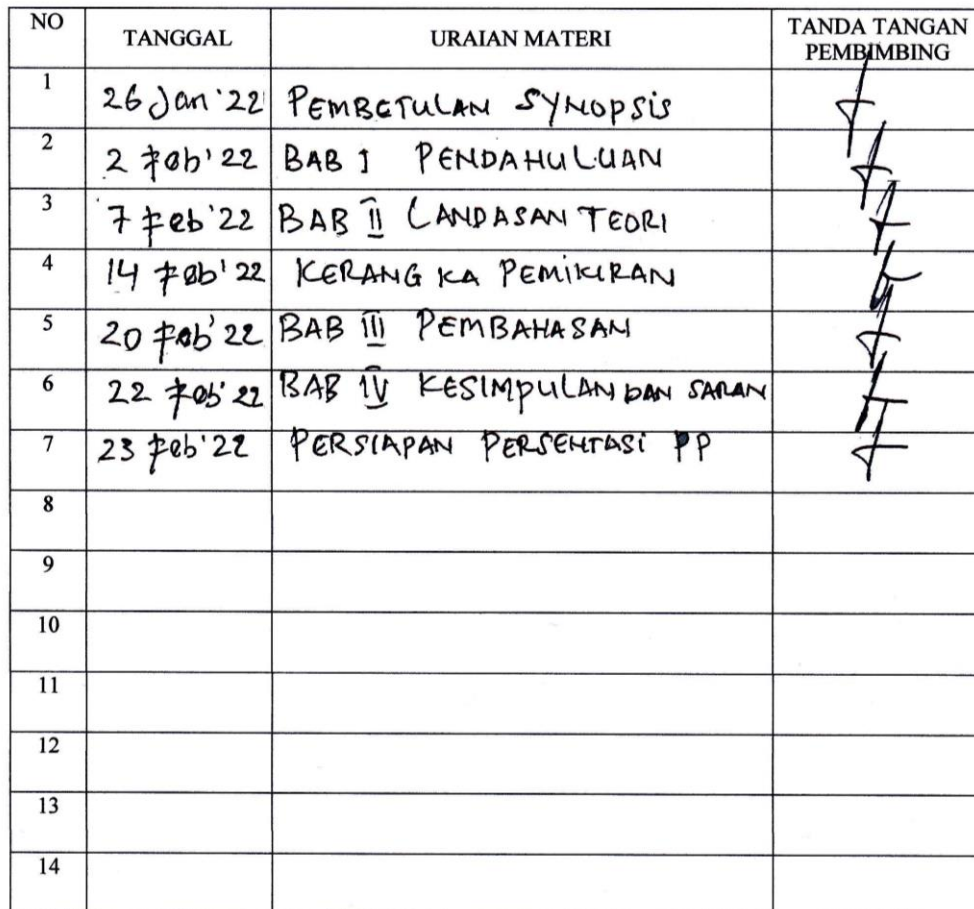 NO TANGGAL URAIAN MATERI TANDA TANGAN PEMBIMBING
1 26 Jan '22 PEMBETULAN SYNOPSIS
2 2 Feb '22 BAB I PENDAHULUAN
3 7 Feb '22 BAB II LANDASAN TEORI
4 14 Feb '22 KERANGKA PEMIKIRAN
5 20 Feb '22 BAB III PEMBAHASAN
6 22 Feb '22 BAB IV KESIMPULAN DAN SARAN
7 23 Feb '22 PERSIAPAN PERSENTASI PP
8
9
10
11
12
13
14